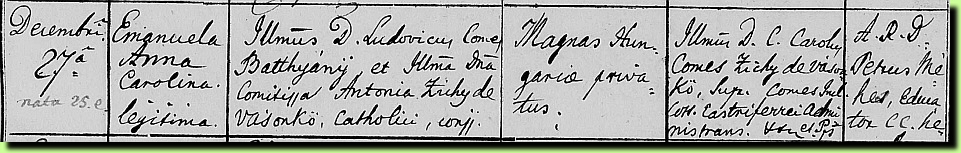 Decembris
27ª
nata 25. e.
Emanuela
Anna
Carolina.
legitima.
Illmus D. Ludovicus Comes
Batthyányi et Illma Dna
Comitissa Antonia Zichy de
Vásonkö, Catholici, conj.
Magnas Hun-
gariæ priva-
tus.
Illmus D. C. Caroly
Comes Zichy de Váson-
kö, Sup. Comes
Cott. Castriferrei Admi-
nistrans.
A. R. D.
Petrus Mé-
hes, Educa-
tor CC. he-